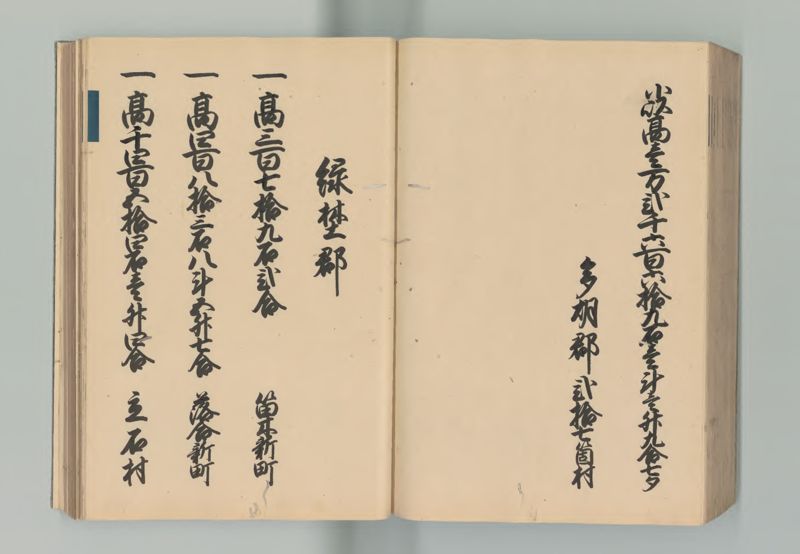 小以高壱万弐千六百六拾九石壱斗壱升九合七夕
多胡郡弐拾七箇村
緑埜郡
一高三百七拾九石弐合 笛木新町
一高四百八拾三石八斗五升七合 落合新町
一高千四百五拾四石壱升四合 立石村